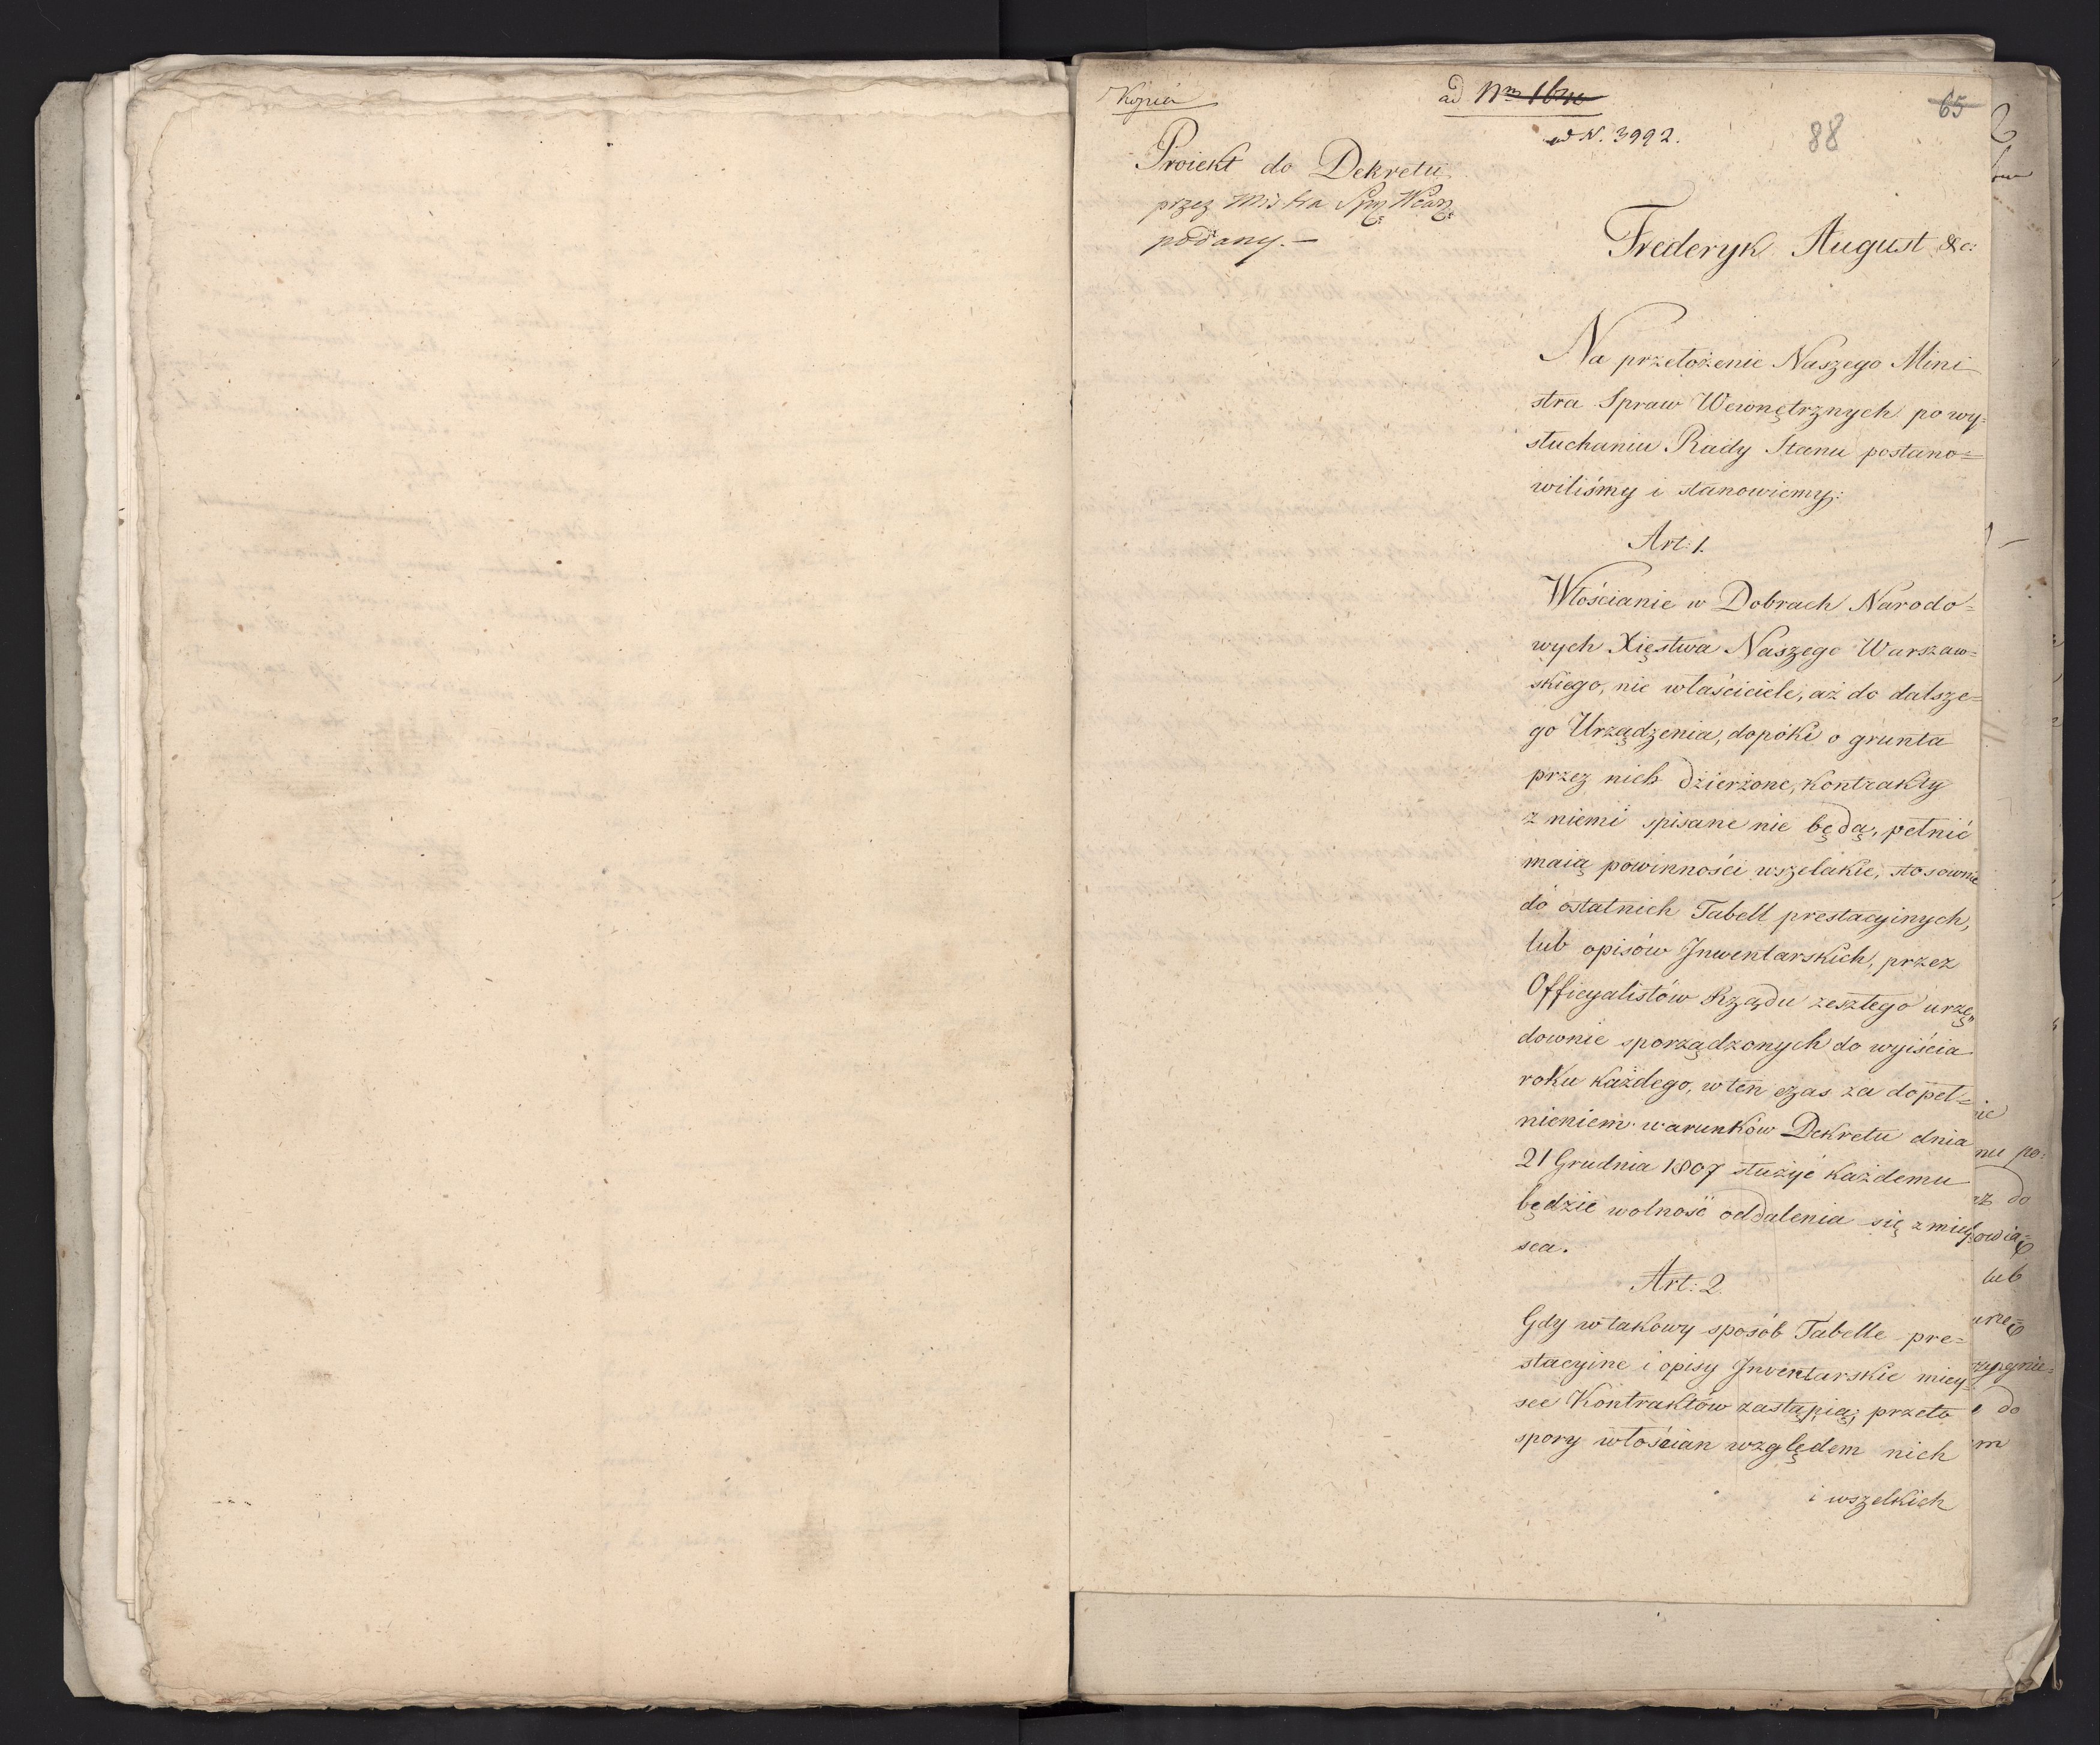 Kopia
ad Nm
ad N. 3992.
65
88
Proiekt do Dekretu
przez Mistra Spr: Wewn:
podany.—
Frederyk August &c:
Na przełożenie Naszego Mini
stra Spraw Wewnętrznych po wy=
słuchaniu Rady Stanu postano=
wiliśmy i stanowiemy:
Art: 1.
Włościanie w Dobrach Narodo=
wych Xięstwa Naszego Warszaw=
skiego, nie właściciele, aż do dalsze=
go Urządzenia, dopóki o grunta
przez nich dzierżone, kontrakty
z niemi spisane nie będą, pełnić
maią powinności wszelakie, stosownie
do ostatnich Tabell prestacyinych,
lub opisów Inwentarskich, przez
Officyalistów Rządu zeszłego urzę„
downie sporządzonych do wyiścia
roku każdego, w ten czas za dopeł=
nieniem warunków Dekretu dnia
21 Grudnia 1807 służyć każdemu
będzie wolność oddalenia się z miey
sca.
Art: 2.
Gdy w takowy sposób Tabelle pre=
stacyine i opisy Inwentarskie miey=
sce Kontraktów zastąpią; przeto
spory włościan względem nich
i wszelkich
nie
nu po:
az do
owią=
lub
urzę=
do
m